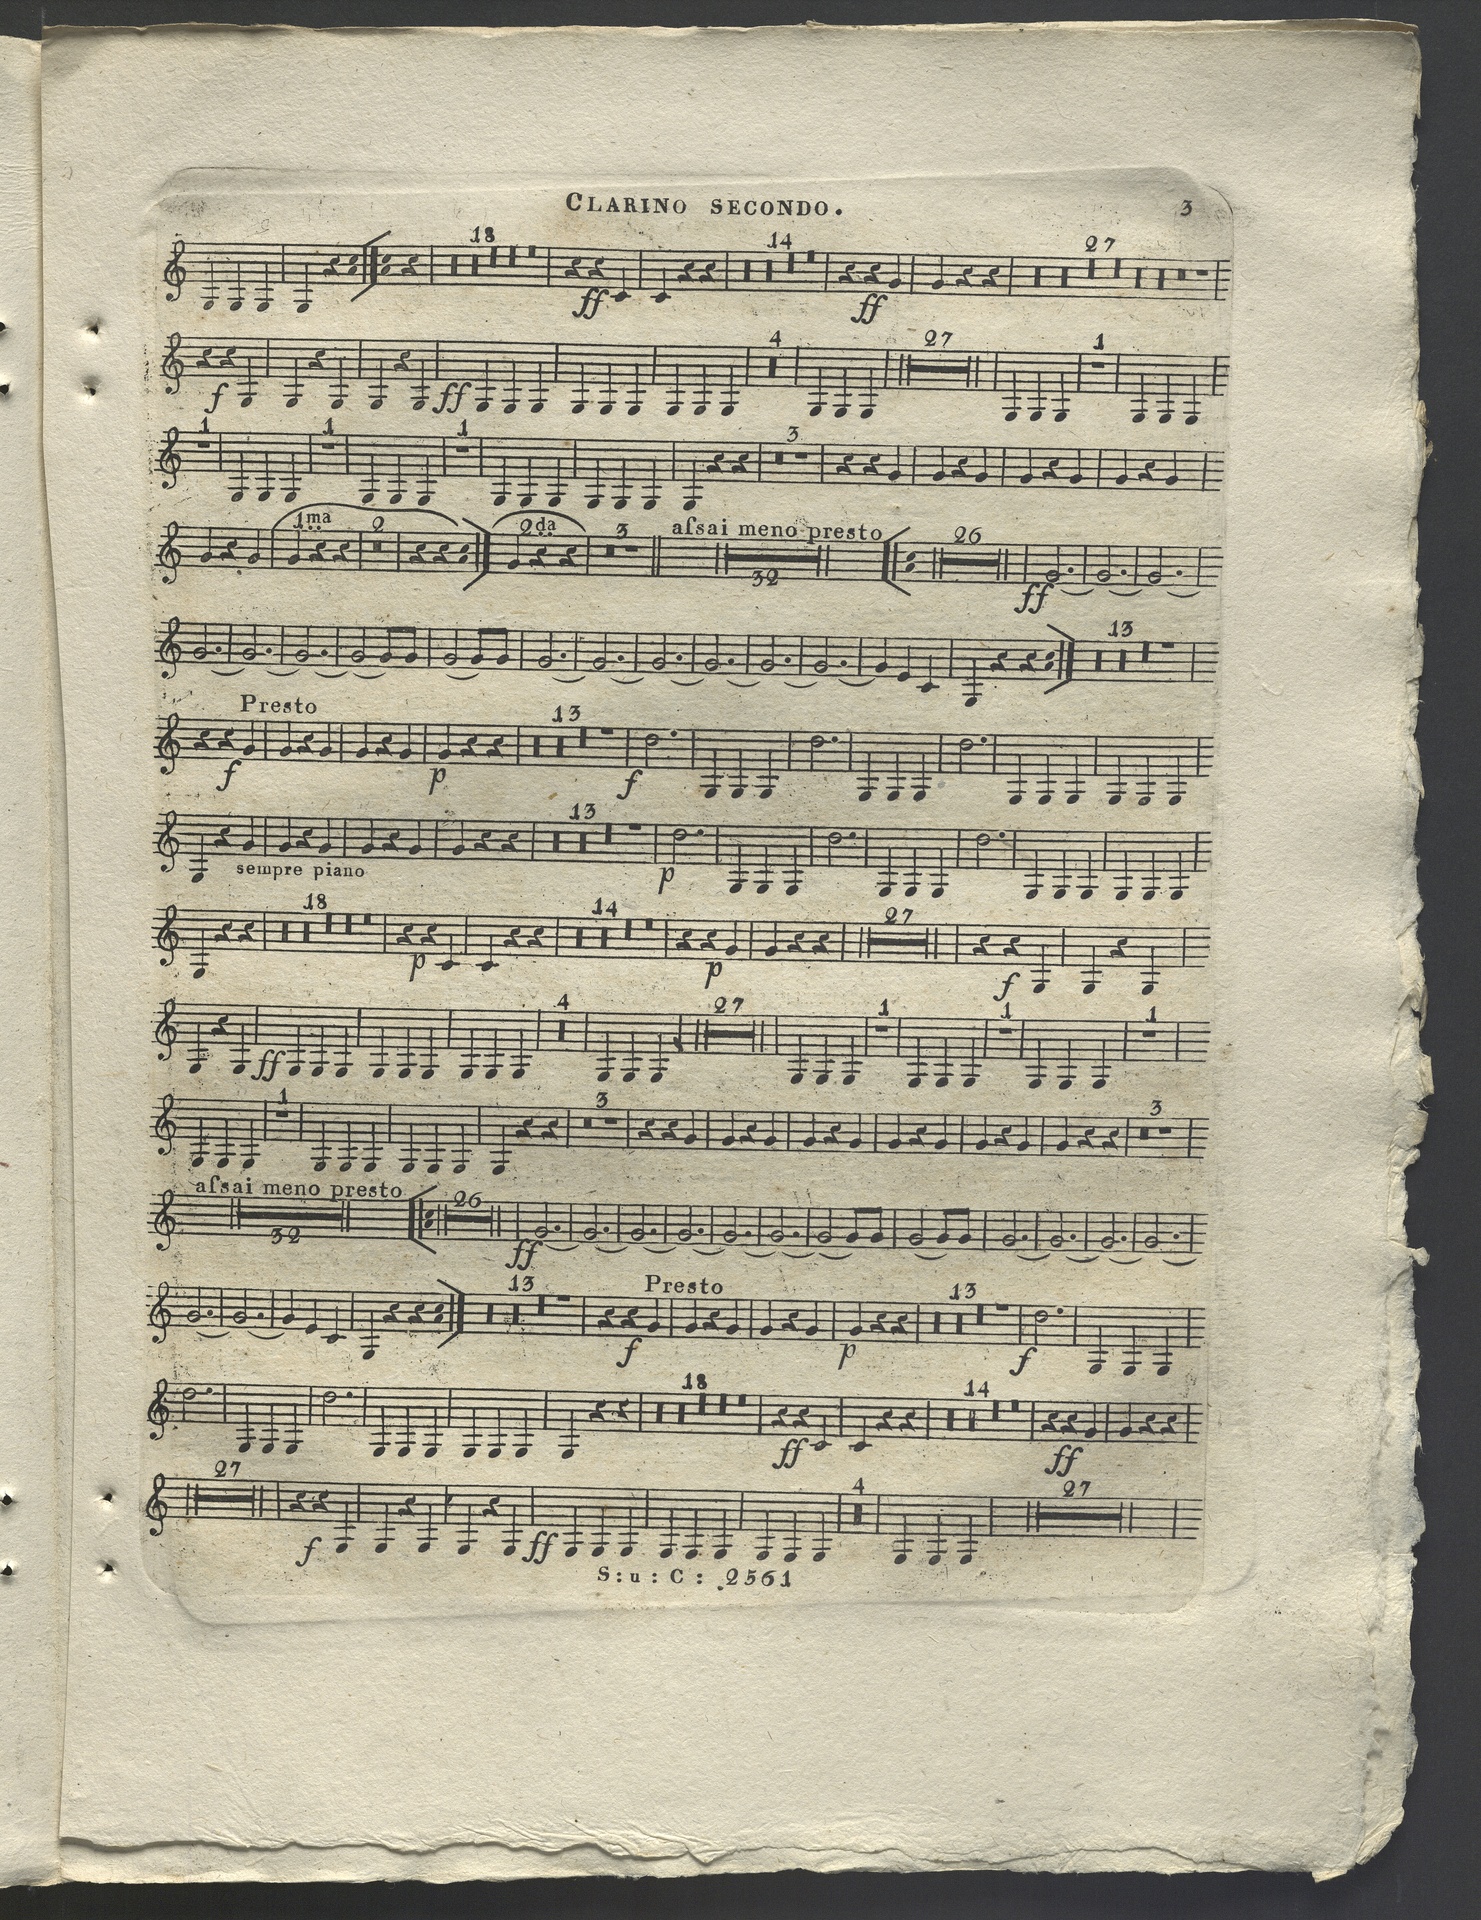 CLARINO SECONDO. 3
18 14 27
ff ff
4 27 1
f ff
1 1 1 3
1ma 2 2da 3 aſsai meno presto 26
32 ff
13
Presto 13
f p f
13
sempre piano p
18 14 27
p p f
4 27 1 1 1
ff
1 3 3
aſsai meno presto 26
32 ff
13 Presto 13
f p f
18 14
ff ff
27 4 27
f ff
S: u: C: 2561